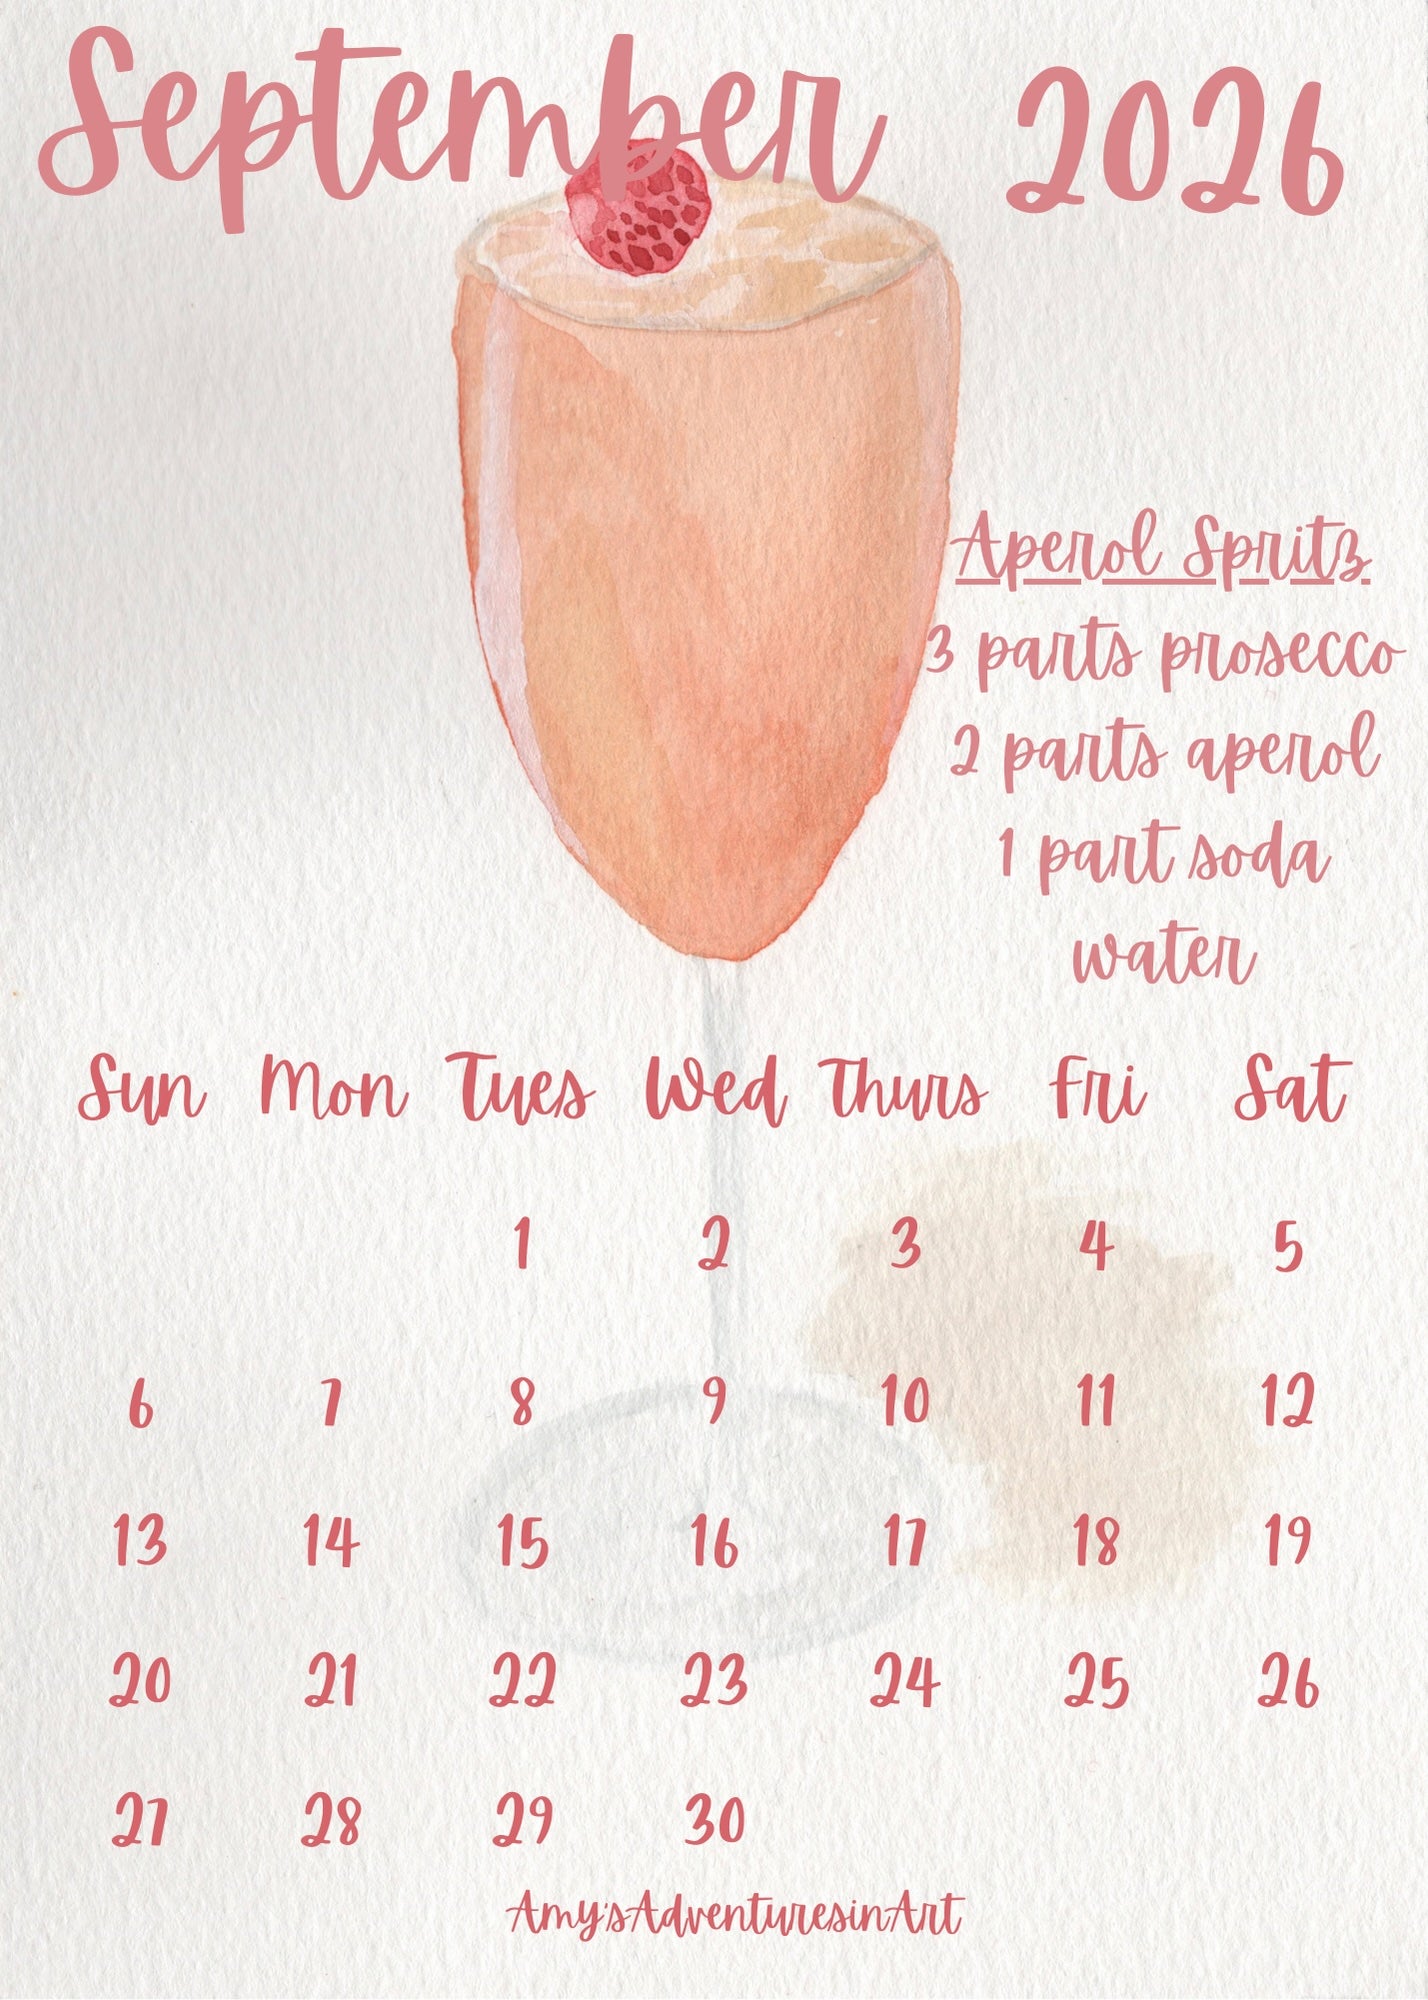 September 2026
Aperol Spritz
3 parts prosecco
2 parts aperol
1 part soda
water
Sun Mon Tues Wed Thurs Fri Sat
1 2 3 4 5
6 7 8 9 10 11 12
13 14 15 16 17 18 19
20 21 22 23 24 25 26
27 28 29 30
Amy'sAdventuresinArt